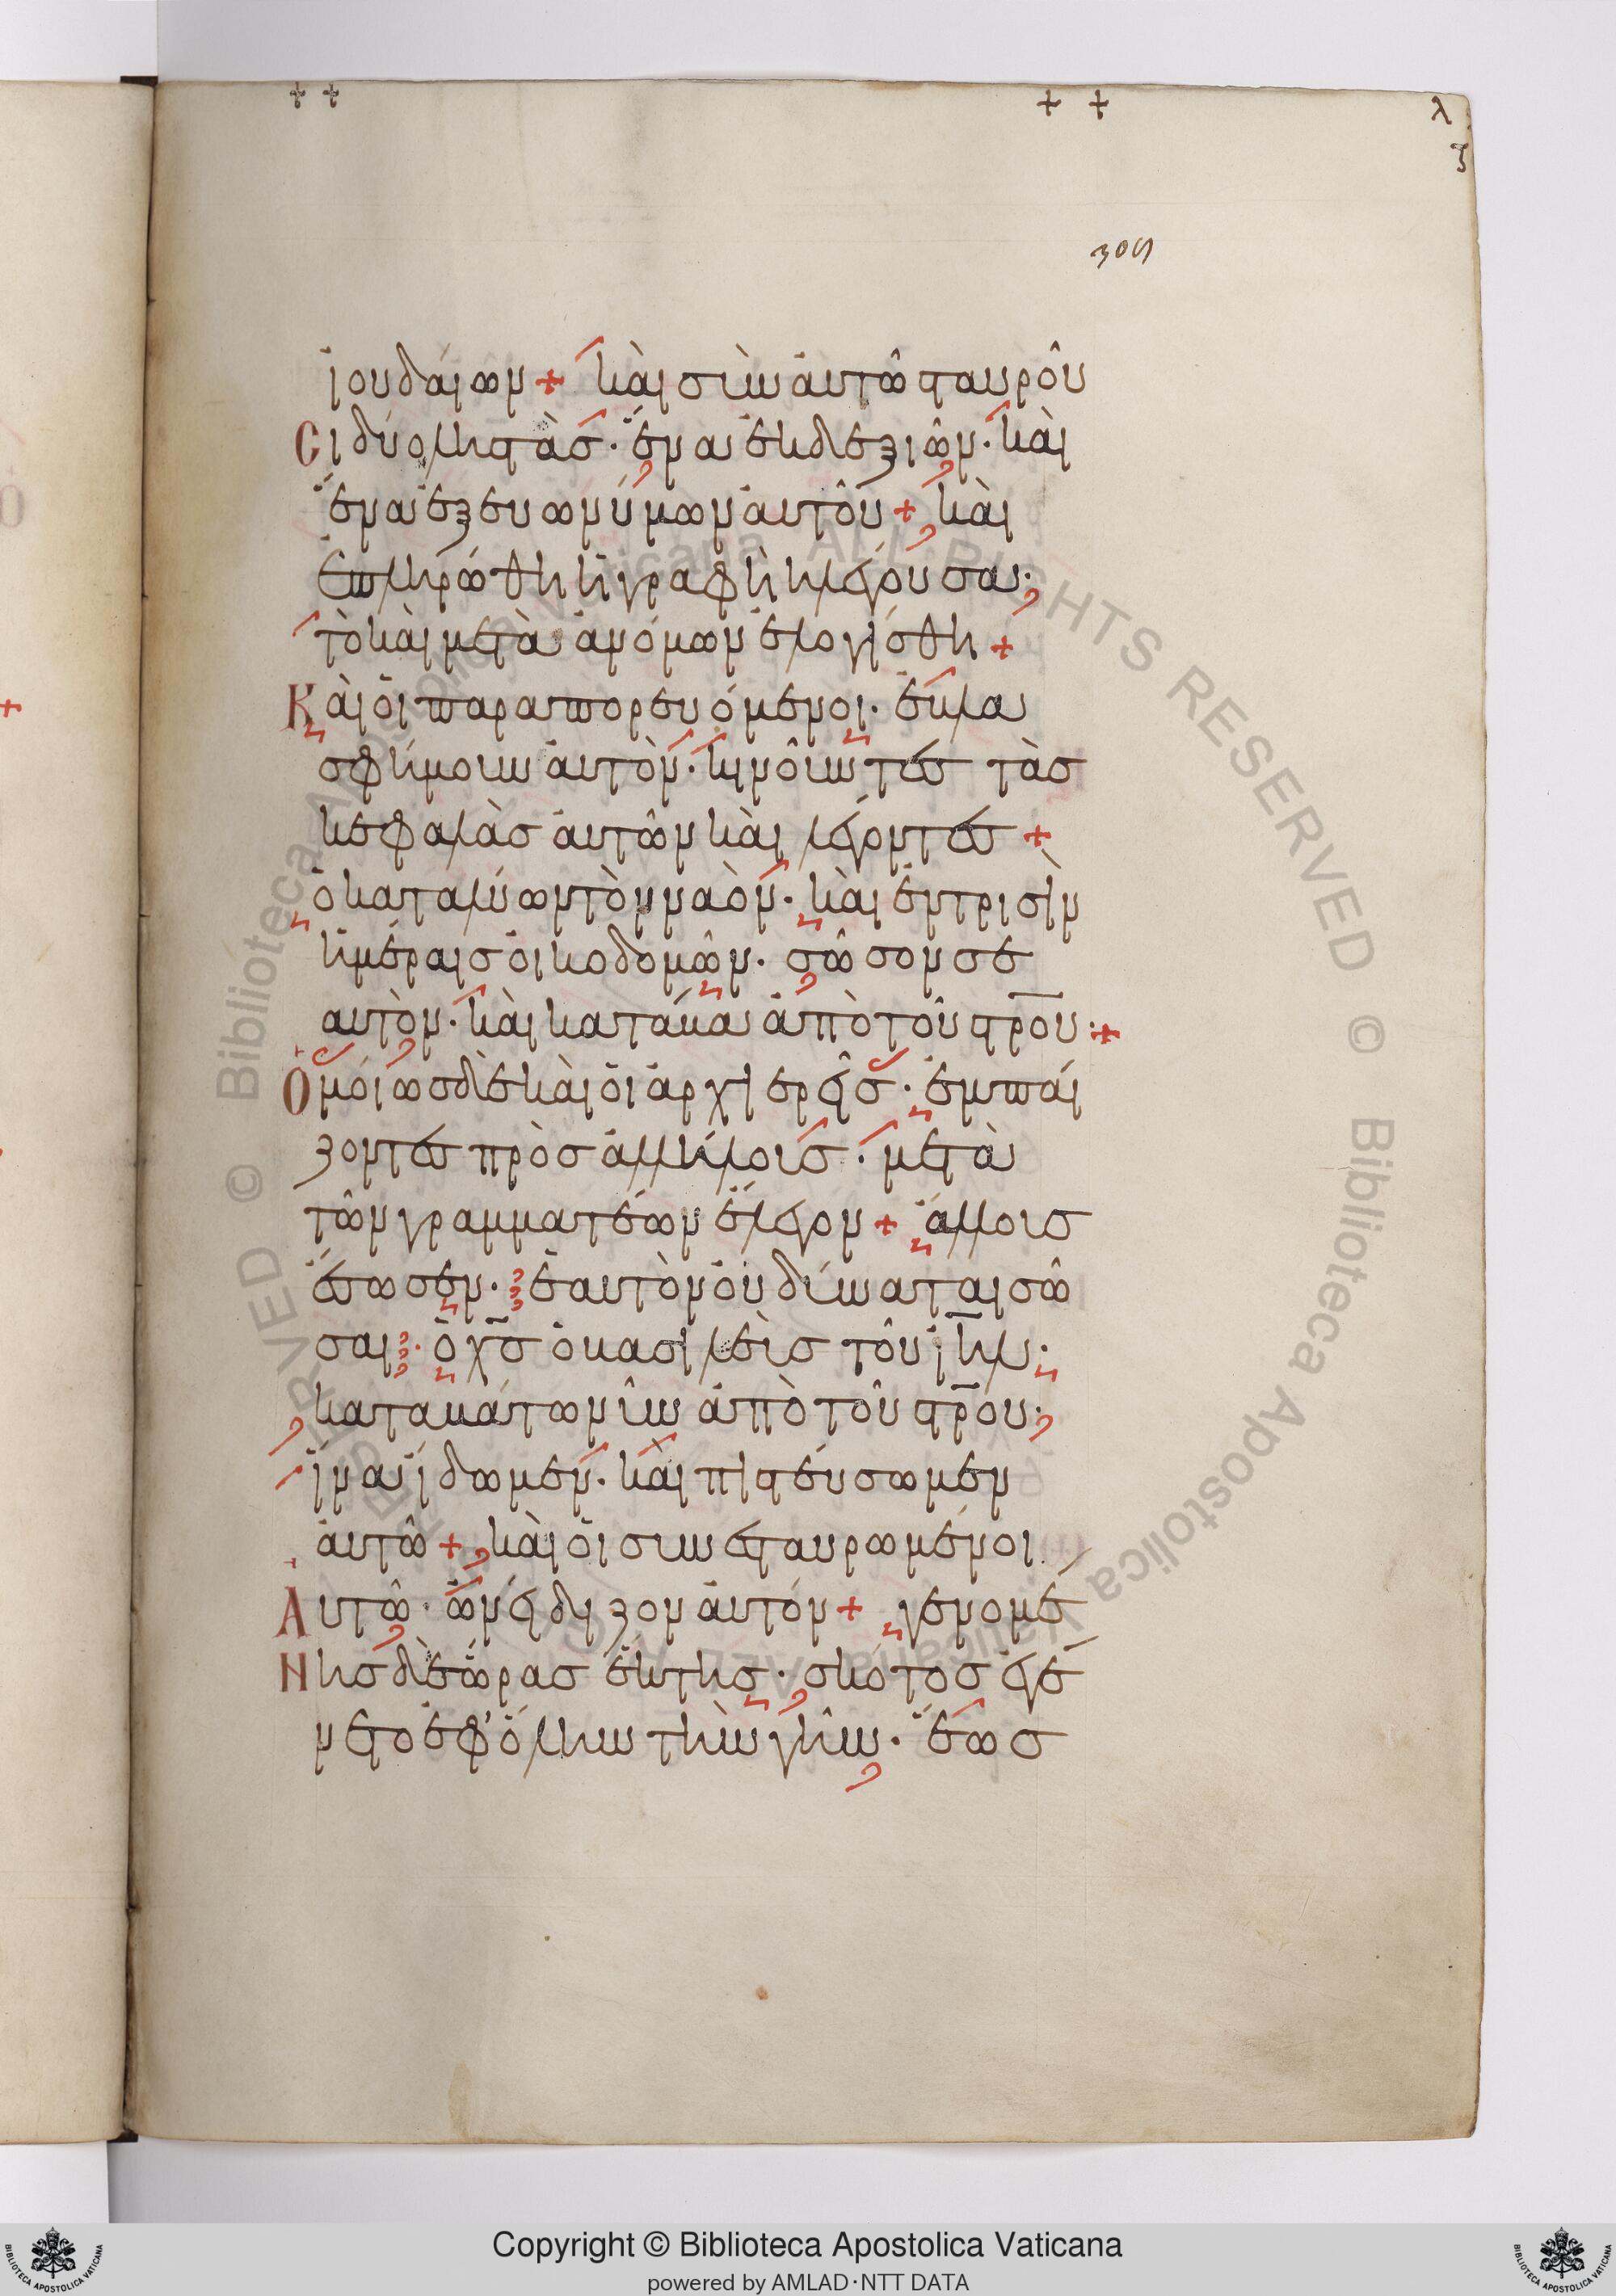 λ
ζ
305
ἰουδαίων + καὶ σὺν ἀυτῶ σταυρου
σι δύο ληστὰσ· ἕνα ἐκ δεξιῶν· καὶ
ἕνα ἐξ ευωνύμων ἀυτοῦ + καὶ
ἐπληρώθη ἡ γραφὴ ἡ λέγουσα·
τὸ καὶ μετὰ ἀνόμων ἐλογίσθη +
Καὶ ὁι παραπορευόμενοι· ἐβλα
σφήμουν ἀυτὸν· κινοῦντες τὰσ
κεφαλὰσ ἀυτῶν καὶ λέγοντες +
ὁ καταλύων τὸν ναὸν· καὶ ἐν τρισὶν
ἡμέραισ ὀικοδομῶν· σῶσον σε
αυτὸν· καὶ κατάβα ἀπὸ τοῦ στρου·+
Ὁμοίωσ δὲ καὶ ὁι ἀρχιερεῖσ· ἐμπαί
ζοντες πρὸσ ἀλλήλουσ· μετὰ
τῶν γραμματέων ἔλεγον + ἄλλουσ
ἔσωσεν· ἑαυτὸν ὀυ δύναται σῶ
σαι· ὁ χσ ὁ βασιλεὺσ τοῦ ιηλ·
καταβάτω νῦν ἀπὸ τοῦ στρου·
ἵνα ἴδωμεν· καὶ πιστέυσωμεν
ἀυτῶ + καὶ ὁι συνεσταυρωμένοι
Αυτῶ· ὠνείδιζον ἀυτόν + γενομέ
Νησ δὲ ὥρασ ἕκτησ· σκότοσ ἐγέ
νετο ἐφ' ὅλην τὴν γῆν· ἕωσ
Copyright © Biblioteca Apostolica Vaticana
powered by AMLAD·NTT DATA